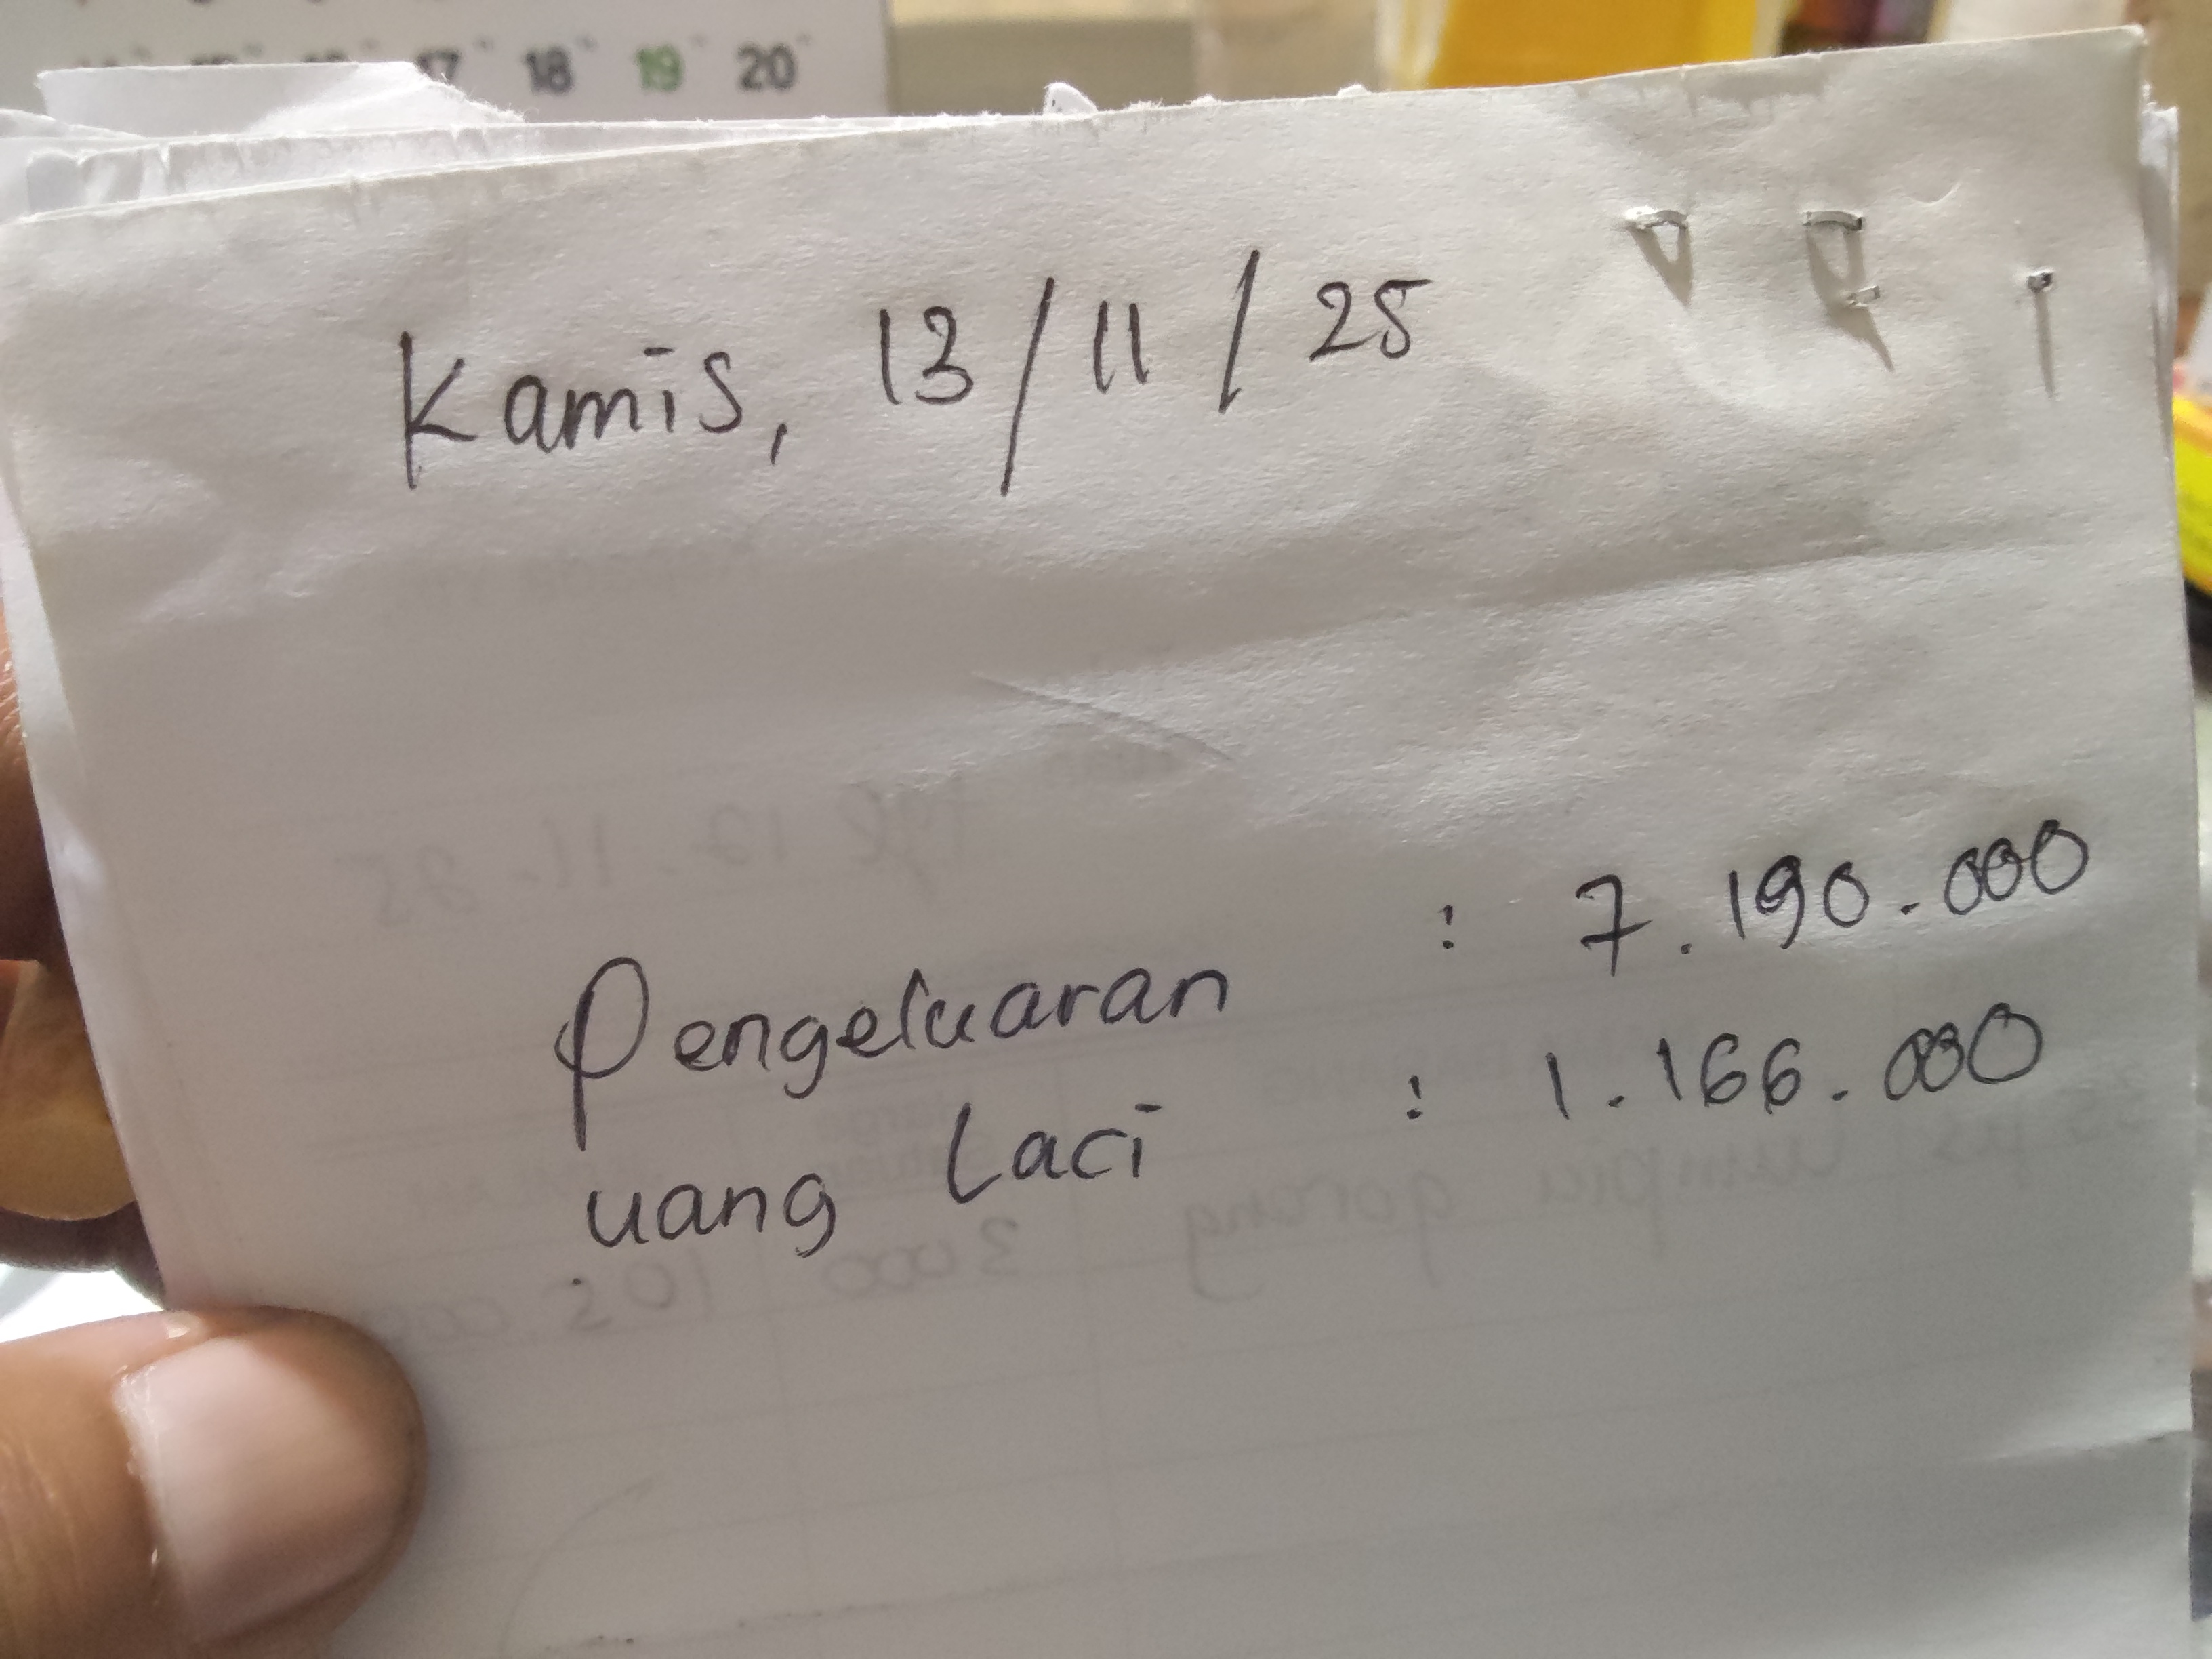 17 18 19 20
Kamis, 13/11/25
Pengeluaran : 7.190.000
uang Laci : 1.166.000